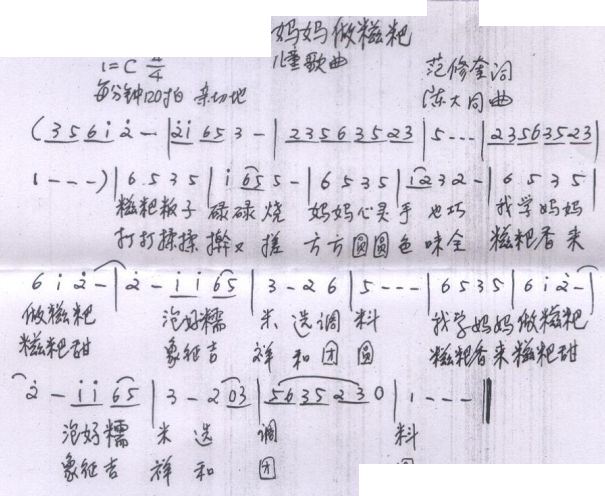 妈妈做糍粑
儿童歌曲
1=C 4/4
范修奎词
每分钟120拍 亲切地
陈大同曲
(3 5 6 i 2̇ - | 2̇ i 6 5 3 - | 2 3 5 6 3 5 2 3 | 5 - - - | 2 3 5 6 3 5 2 3 |
1 - - - ) | 6 5 3 5 | i 6 5 5 - | 6 5 3 5 | i 2 3 2 - | 6 5 3 5 |
糍粑粄子 碌碌烧 妈妈心灵手也巧 我学妈妈
打打揉揉 擀又搓 方方圆圆色味全 糍粑香来
6 i 2̇ - | 2̇ - i i 6 5 | 3 - 2 6 | 5 - - - | 6 5 3 5 | 6 i 2̇ - |
做糍粑 泡好糯米选调料 我学妈妈做糍粑
糍粑甜 象征吉祥和团圆 糍粑香来糍粑甜
2̇ - i i 6 5 | 3 - 2 0 3 | 5 6 3 5 2 3 0 | 1 - - - ‖
泡好糯米选调料
象征吉祥和团